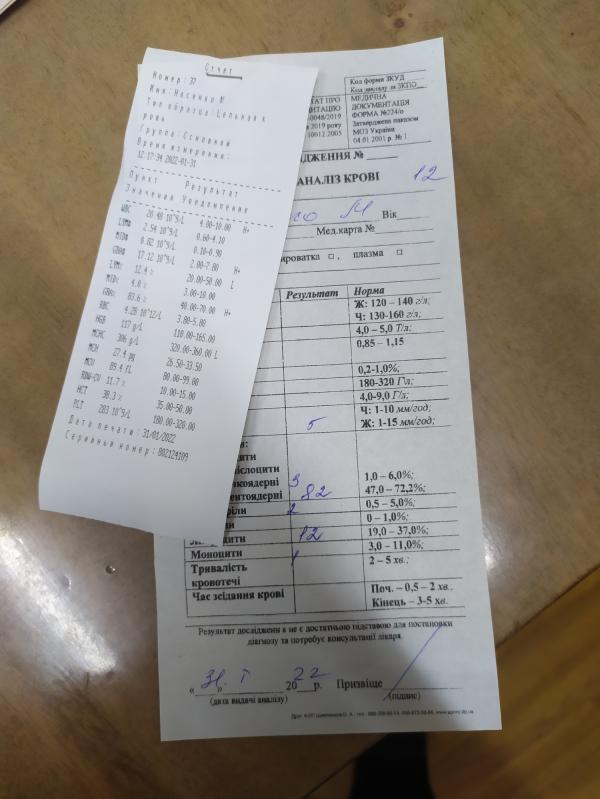 Отчет
Номер: 37
Имя: Насенко М
Тип образца: Цельная к
ровь
Группа: Основной
Время измерения:
12:17:34 2022-01-31
Пункт Результат
Значения Уведомления
WBC 20.48 10^9/L 4.00-10.00 H+
LYM# 2.54 10^9/L 0.60-4.10
MID# 0.82 10^9/L 0.10-0.90
GRA# 17.12 10^9/L 2.00-7.80 H+
LYM% 12.4 % 20.00-50.00 L
MID% 4.0 % 3.00-10.00
GRA% 83.6 % 40.00-70.00 H+
RBC 4.28 10^12/L 3.80-5.80
HGB 117 g/L 110.00-165.00
MCHC 306 g/L 320.00-360.00 L
MCH 27.4 pg 26.50-33.50
MCV 89.4 fL 80.00-99.00
RDW-CV 11.7 % 10.00-15.00
HCT 38.3 % 35.00-50.00
PLT 283 10^9/L 180.00-320.00
Дата печати: 31/01/2022
Серийный номер: 802124109
Код форми ЗКУД
Код закладу за ЗКПО
ТАТ ПРО
ДИТАЦІЮ
0048/2019
2019 року
10012.2005
МЕДИЧНА
ДОКУМЕНТАЦІЯ
ФОРМА №224/о
Затверджена наказом
МОЗ України
04.01.2001 р. № 1
ДЖЕННЯ №
АНАЛІЗ КРОВІ 12
М Вік
Мед.карта №
ироватка □, плазма □
Результат Норма
Ж: 120 – 140 г/л;
Ч: 130-160 г/л;
4,0 – 5,0 Т/л;
0,85 – 1,15
0,2-1,0%;
180-320 Г/л;
4,0-9,0 Г/л;
Ч: 1-10 мм/год;
5 Ж: 1-15 мм/год;
3 1,0 – 6,0%;
82 47,0 – 72,2%;
2 0,5 – 5,0%;
0 – 1,0%;
12 19,0 – 37,0%;
Моноцити 1 3,0 – 11,0%;
Тривалість
кровотечі 2 – 5 хв.;
Час зсідання крові Поч. – 0,5 – 2 хв.,
Кінець – 3-5 хв.
Результат дослідження не є достатньою підставою для постановки
діагнозу та потребує консультації лікаря.
« 31. I » 2022 р. Призвіще
(дата видачі аналізу) (підпис)